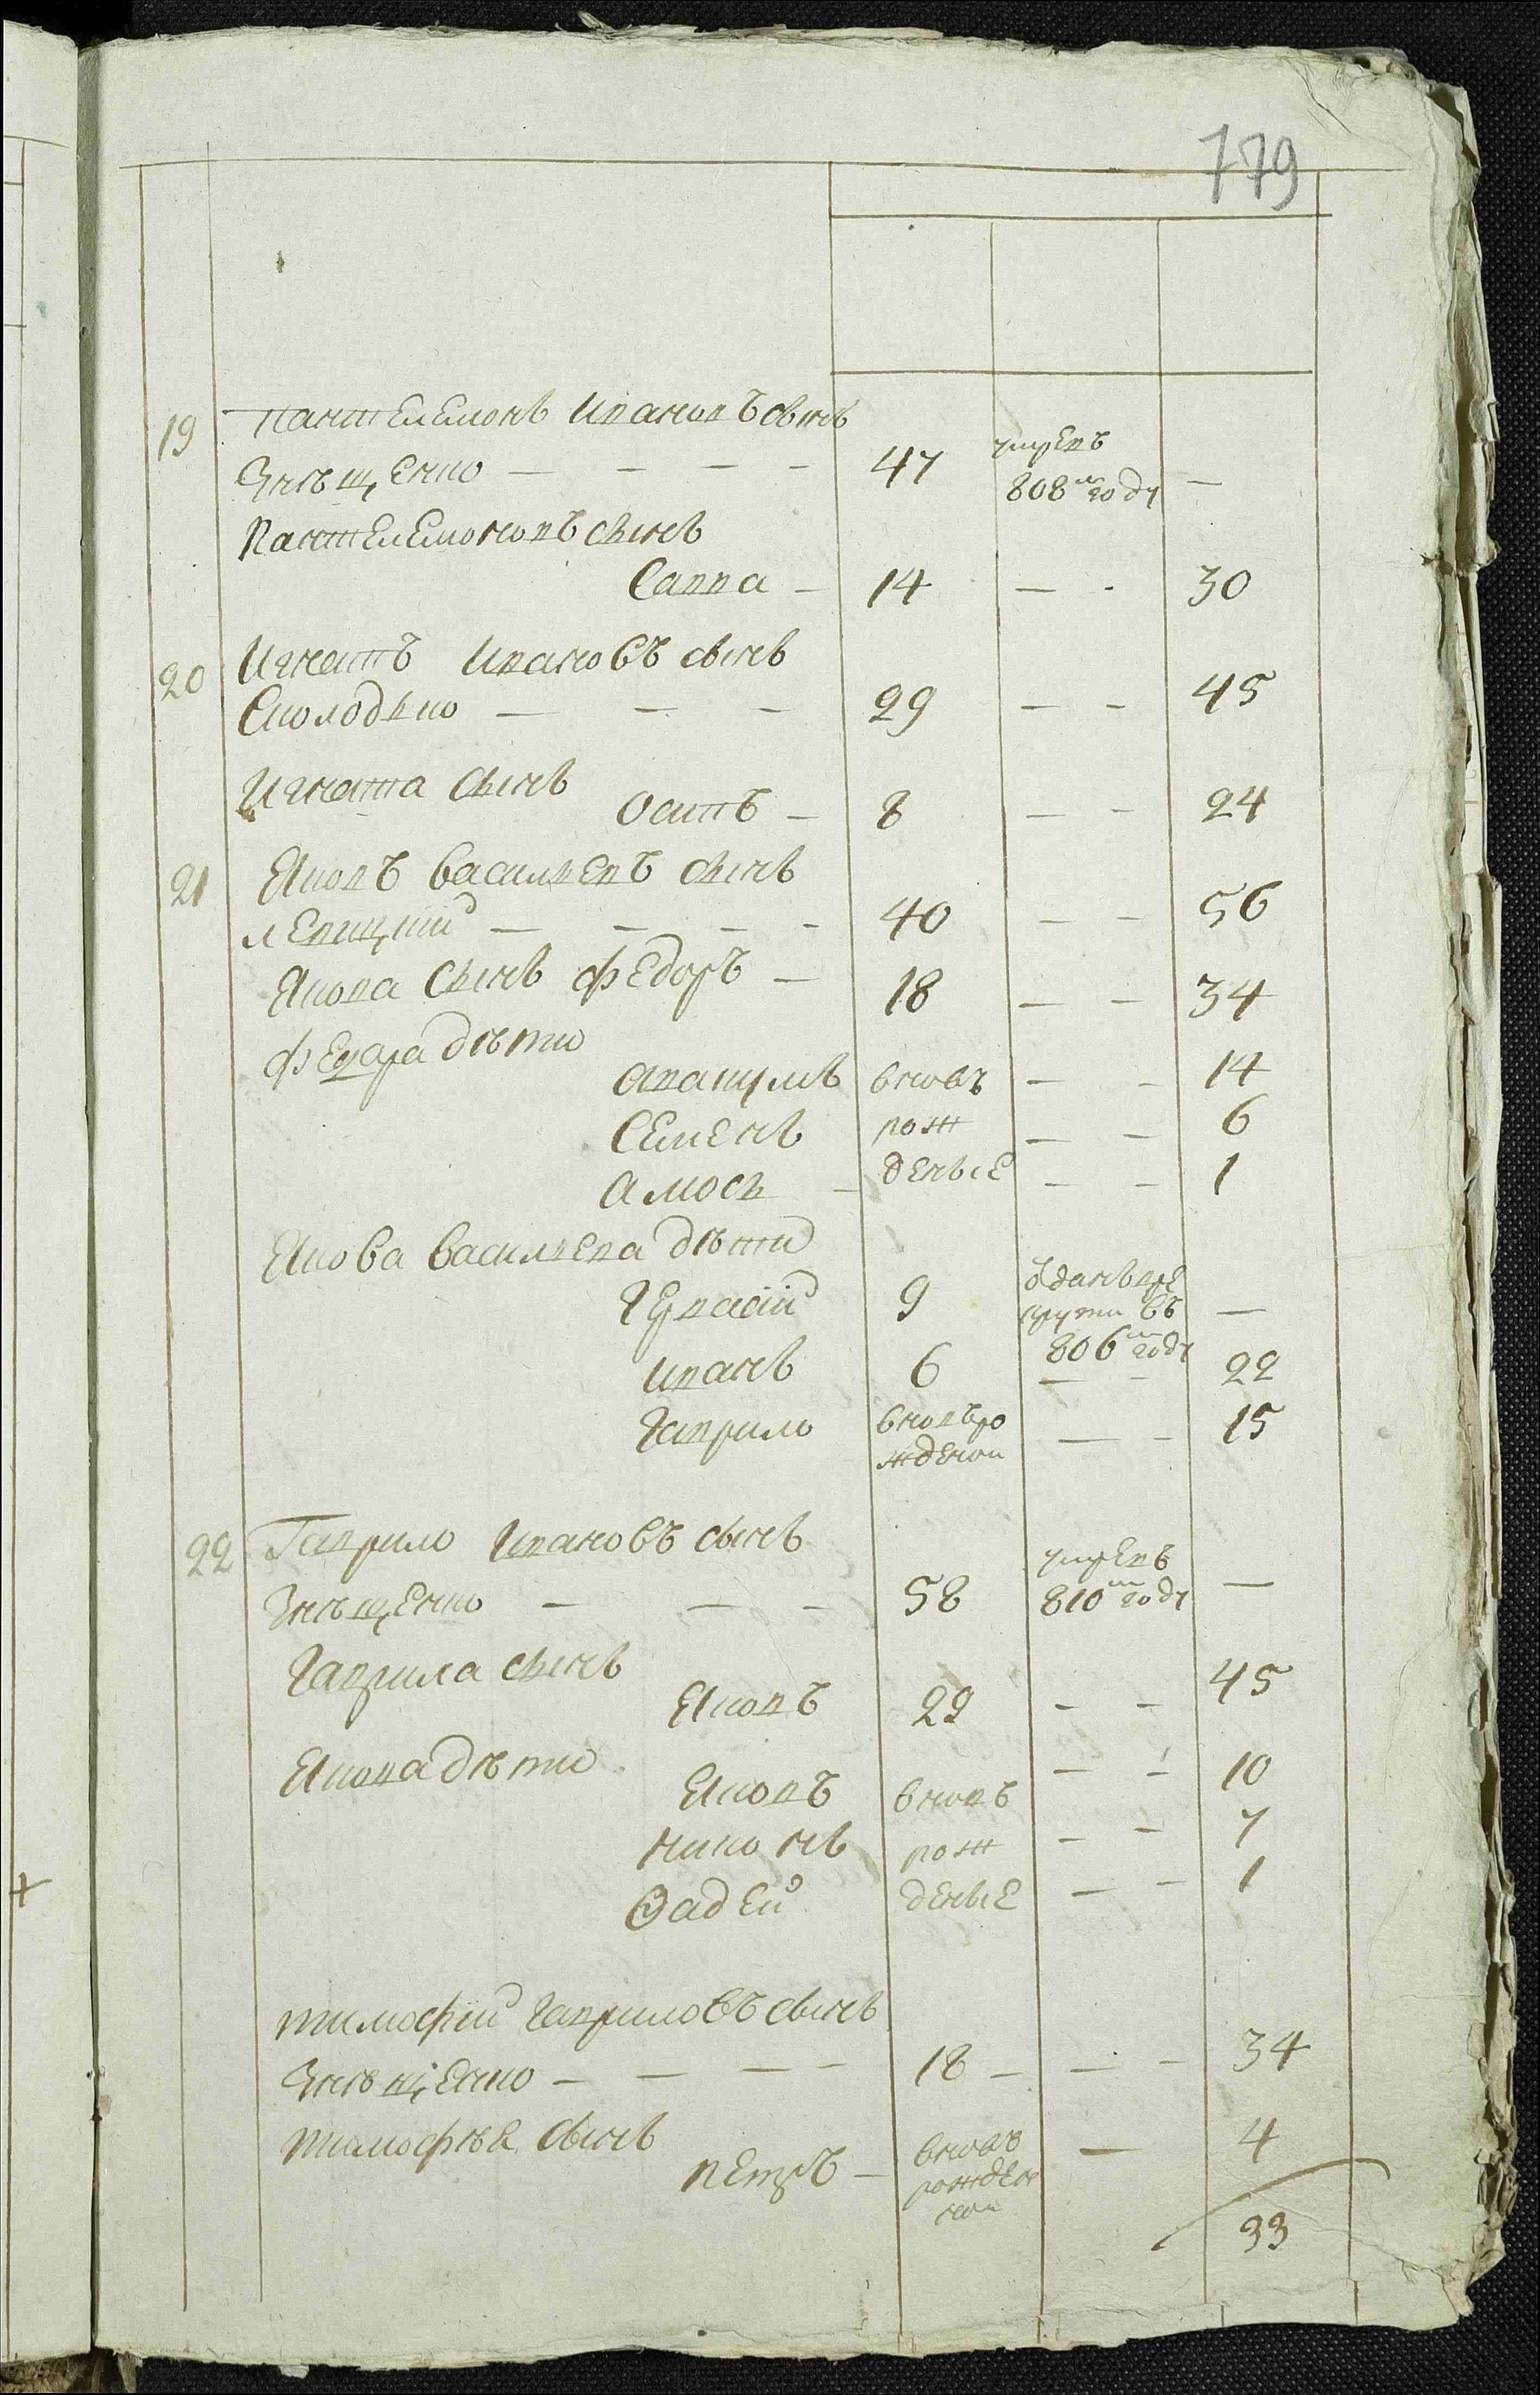 779
19 Пантелемонъ Ивановъ сынъ
Знѣщенко — — — — 47 умре въ —
808м году
Пантелемоновъ сынъ
Савва — 14 — - 30
20 Игнатъ Ивановъ сынъ
Сколодько — — — 29 — - 45
Игната сынъ
Остапъ — 8 — — 24
21 Яковъ Васильевъ сынъ
— — — — 40 — — 56
Якова сынъ Федоръ — 18 — — 34
Федора дѣти
Авакумъ вновъ — - 14
Семенъ рож — — 6
Амосъ — деные — — 1
Якова Васильева дѣти
Гервасій 9 отданъ в ре
круты въ —
806м году
Иванъ 6 — - 22
Гаврило вновъ ро — - 15
жденой
22 Гаврило Ивановъ сынъ
умре въ
Знѣщенко — — — 58 810м году —
Гаврила сынъ
Яковъ 29 — - 45
Якова дѣти
Яковъ вновъ — — 10
Никонъ рож — — 7
Ѳадей деные — — 1
Тимофій Гавриловъ сынъ
Знѣщенко — — — — 18 — — - 34
Тимофѣя сынъ
Петръ — вновъ — 4
рожден
ной
33